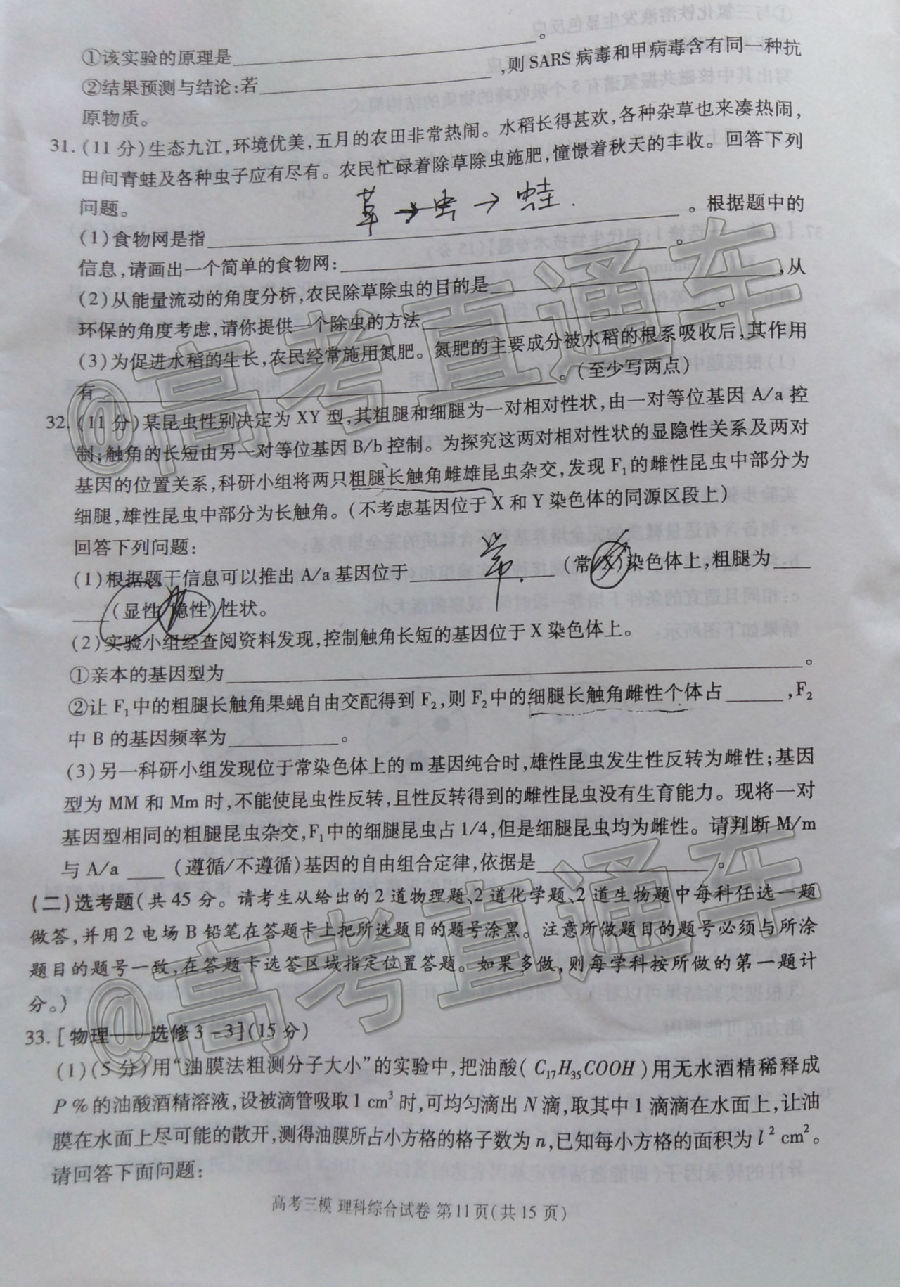 ①该实验的原理是
②结果预测与结论:若 ,则SARS病毒和甲病毒含有同一种抗
原物质。
31.(11分)生态九江,环境优美,五月的农田非常热闹。水稻长得甚欢,各种杂草也来凑热闹,
田间青蛙及各种虫子应有尽有。农民忙碌着除草除虫施肥,憧憬着秋天的丰收。回答下列
问题。
草→虫→蛙.
(1)食物网是指 。根据题中的
信息,请画出一个简单的食物网: 。
(2)从能量流动的角度分析,农民除草除虫的目的是 ,从
环保的角度考虑,请你提供一个除虫的方法 。
(3)为促进水稻的生长,农民经常施用氮肥。氮肥的主要成分被水稻的根系吸收后,其作用
有 。(至少写两点)
32.(11分)某昆虫性别决定为XY型,其粗腿和细腿为一对相对性状,由一对等位基因A/a控
制;触角的长短由另一对等位基因B/b控制。为探究这两对相对性状的显隐性关系及两对
基因的位置关系,科研小组将两只粗腿长触角雌雄昆虫杂交,发现F₁的雌性昆虫中部分为
细腿,雄性昆虫中部分为长触角。(不考虑基因位于X和Y染色体的同源区段上)
回答下列问题:
(1)根据题干信息可以推出A/a基因位于 常 (常/ )染色体上,粗腿为
(显性/隐性)性状。
(2)实验小组经查阅资料发现,控制触角长短的基因位于X染色体上。
①亲本的基因型为 。
②让F₁中的粗腿长触角果蝇自由交配得到F₂,则F₂中的细腿长触角雌性个体占 ,F₂
中B的基因频率为 。
(3)另一科研小组发现位于常染色体上的m基因纯合时,雄性昆虫发生性反转为雌性;基因
型为MM和Mm时,不能使昆虫性反转,且性反转得到的雌性昆虫没有生育能力。现将一对
基因型相同的粗腿昆虫杂交,F₁中的细腿昆虫占1/4,但是细腿昆虫均为雌性。请判断M/m
与A/a (遵循/不遵循)基因的自由组合定律,依据是 。
(二)选考题(共45分。请考生从给出的2道物理题、2道化学题、2道生物题中每科任选一题
做答,并用2电场B铅笔在答题卡上把所选题目的题号涂黑。注意所做题目的题号必须与所涂
题目的题号一致,在答题卡选答区域指定位置答题。如果多做,则每学科按所做的第一题计
分。)
33.[物理——选修3-3](15分)
(1)(5分)用“油膜法粗测分子大小”的实验中,把油酸(C₁₇H₃₅COOH)用无水酒精稀释成
P%的油酸酒精溶液,设被滴管吸取1 cm³时,可均匀滴出N滴,取其中1滴滴在水面上,让油
膜在水面上尽可能的散开,测得油膜所占小方格的格子数为n,已知每小方格的面积为l² cm²。
请回答下面问题:
高考三模 理科综合试卷 第11页(共15页)
@高考直通车
@高考直通车